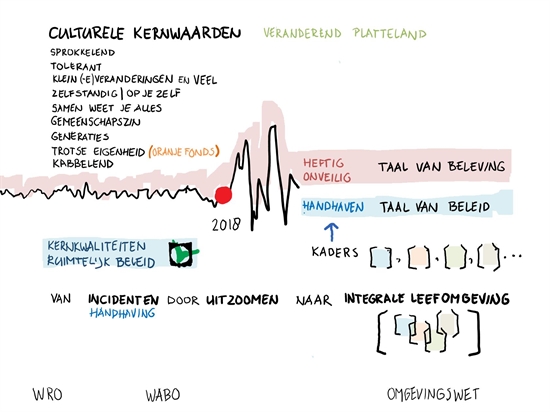 CULTURELE KERNWAARDEN VERANDEREND PLATTELAND
SPROKKELEND
TOLERANT
KLEIN (-E) VERANDERINGEN EN VEEL
ZELFSTANDIG | OP JE ZELF
SAMEN WEET JE ALLES
GEMEENSCHAPSZIN
GENERATIES
TROTSE EIGENHEID (ORANJE FONDS)
KABBELEND
HEFTIG
ONVEILIG
TAAL VAN BELEVING
2018
HANDHAVEN TAAL VAN BELEID
KERNKWALITEITEN
RUIMTELIJK BELEID
KADERS [ ], [ ], [ ], [ ] ...
VAN INCIDENTEN DOOR UITZOOMEN NAAR INTEGRALE LEEFOMGEVING
HANDHAVING
WRO WABO OMGEVINGSWET